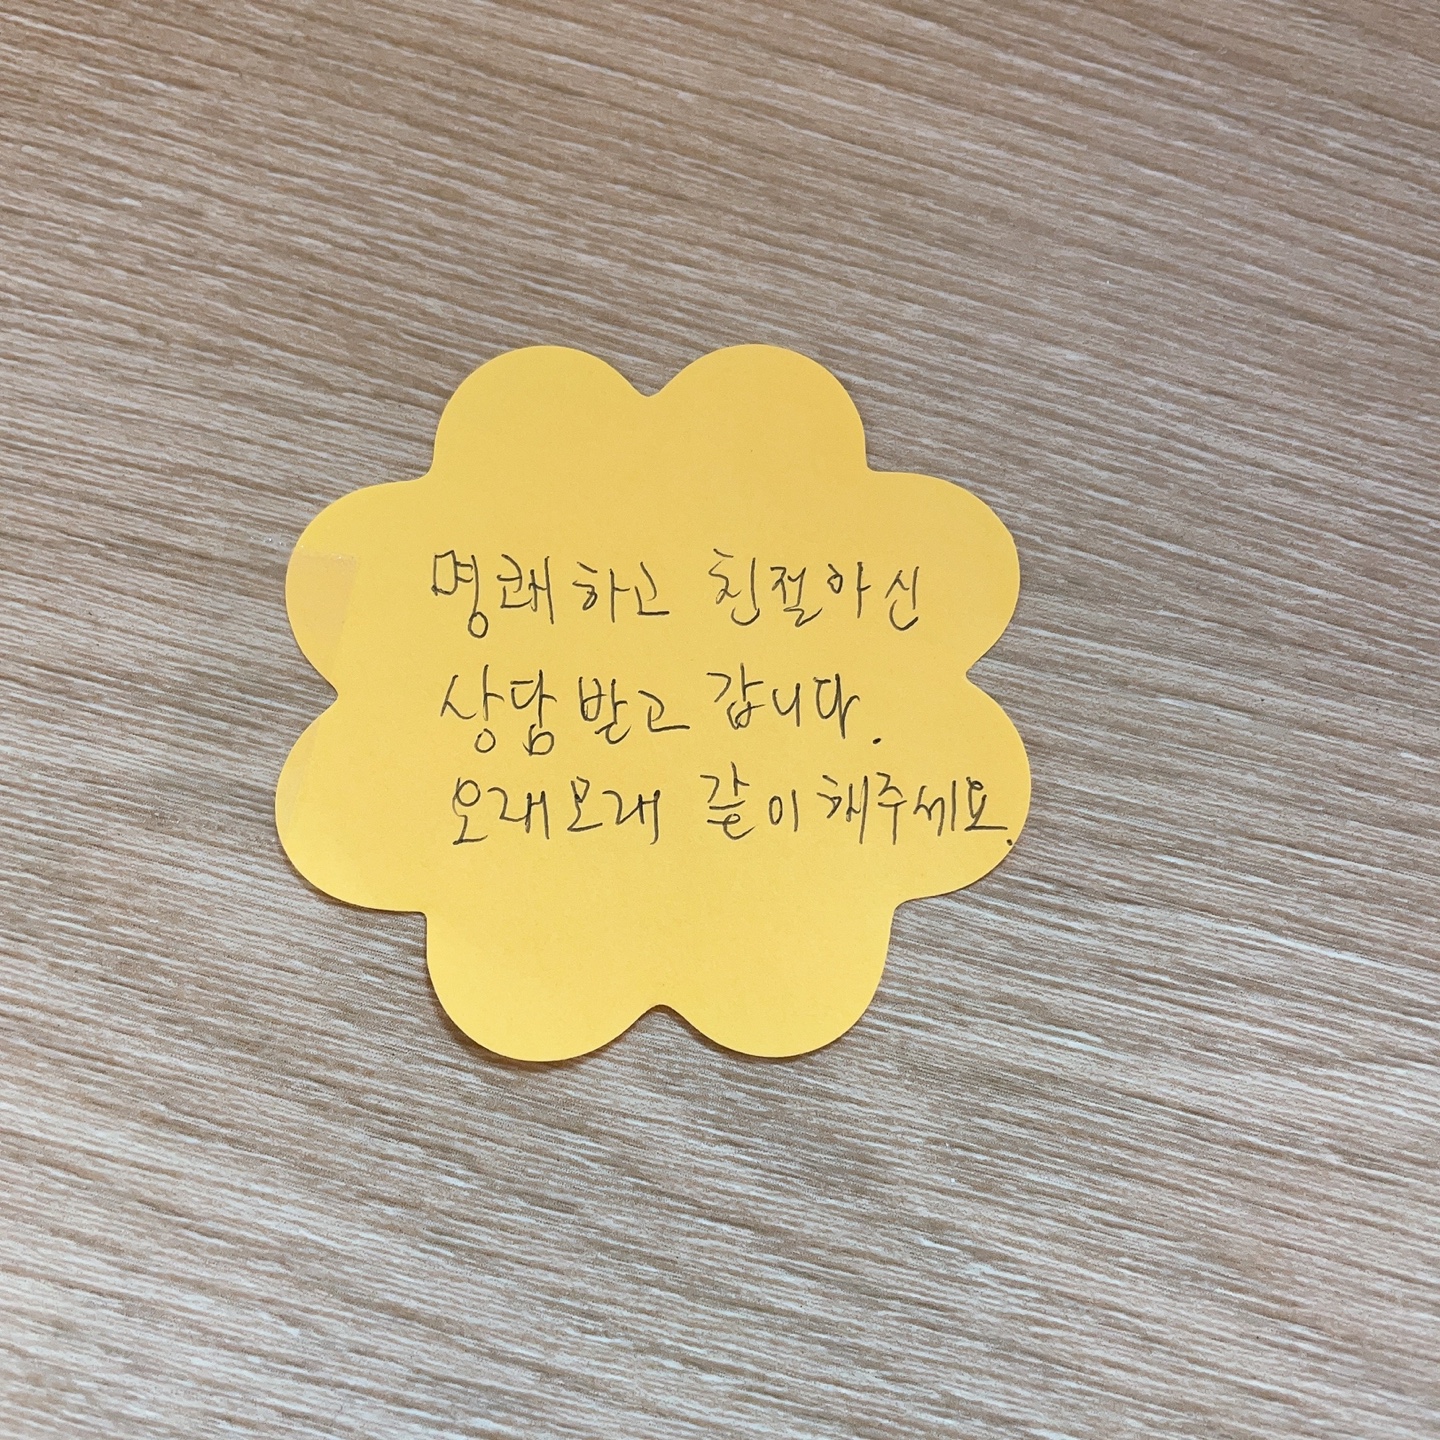 명쾌하고 친절하신
상담 받고 갑니다.
오래오래 같이 해주세요.